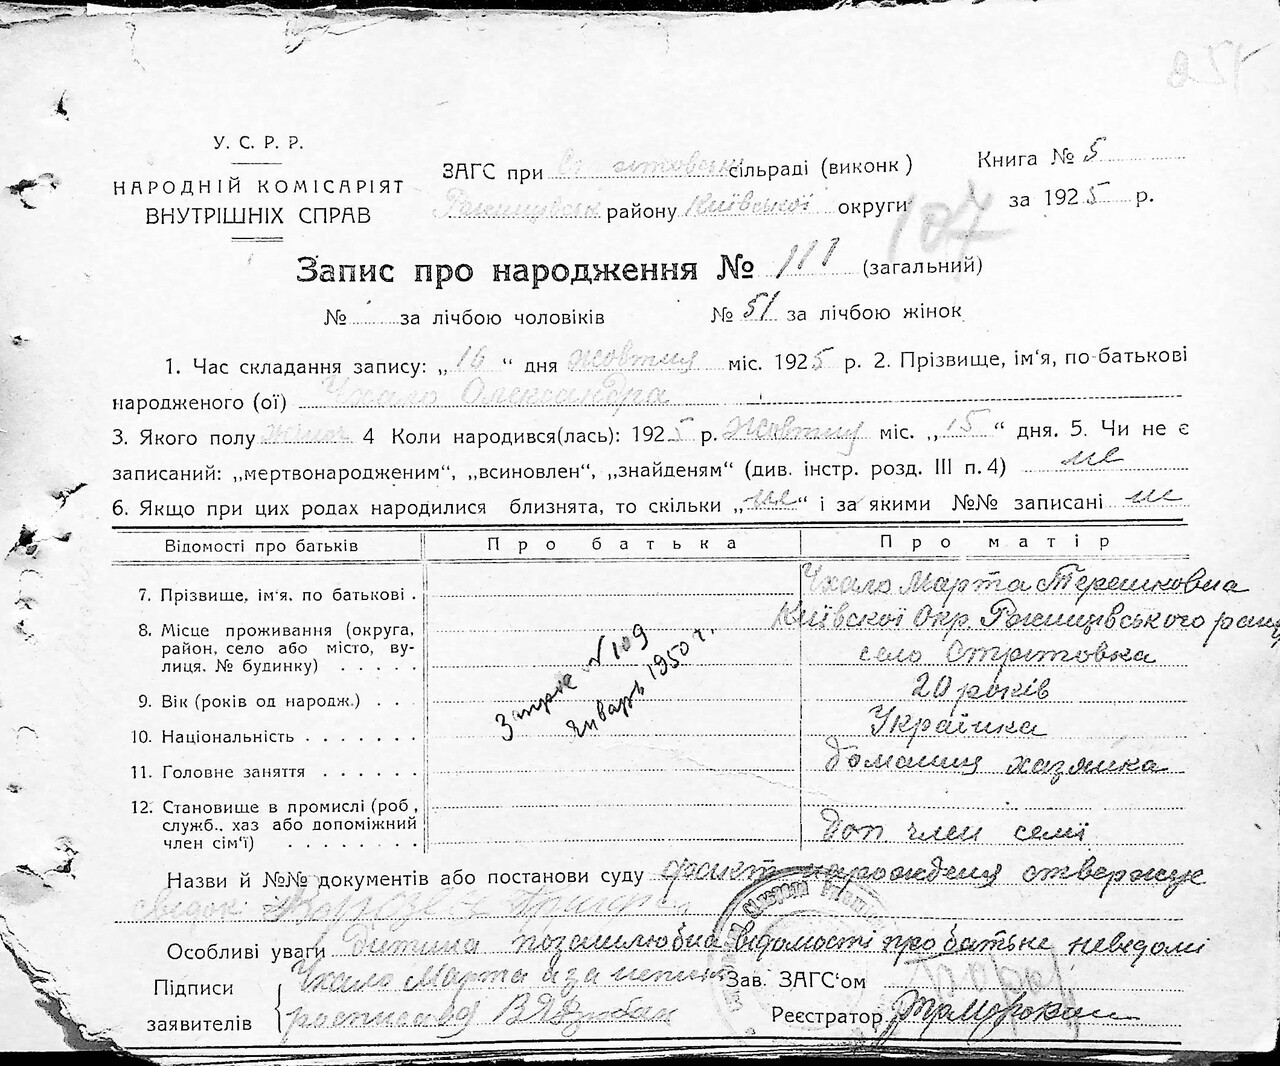 У. С. Р. Р.
НАРОДНІЙ КОМІСАРІЯТ
ВНУТРІШНІХ СПРАВ
ЗАГС при сільраді (виконк)
району Київської округи
Книга № 5
за 1925 р.
107
Запис про народження № 111 (загальний)
№ за лічбою чоловіків № 51 за лічбою жінок
1. Час складання запису: „16“ дня жовтня міс. 1925 р. 2. Прізвище, ім‘я, по-батькові
народженого (ої) Чхало Олександра
3. Якого полу жіноч 4 Коли народився(лась): 1925 р. жовтня міс. „15“ дня. 5. Чи не є
записаний: „мертвонародженим“, „всиновлен“, „знайденям“ (див. інстр. розд. III п. 4) не
6. Якщо при цих родах народилися близнята, то скільки „не“ і за якими №№ записані не
Відомості про батьків Про батька Про матір
7. Прізвище, ім‘я, по батькові . Чхало Марта Терешковна
8. Місце проживання (округа, район, село або місто, вулиця. № будинку) Київскої Окр.
село
9. Вік (років од народж.) 20 років
10. Національність Українка
11. Головне заняття домашня хазяйка
12. Становище в промислі (роб, служб., хаз або допоміжний член сім‘ї) доп член семї
№ 109
Январь 1950 г.
Назви й №№ документів або постанови суду факт народженя ствержує
свідок
Особливі уваги дитина позашлюбна відомості про батька невідомі
Підписи
заявителів
Чхало Марта а за неписм
росписався
Зав. ЗАГС‘ом
Реєстратор